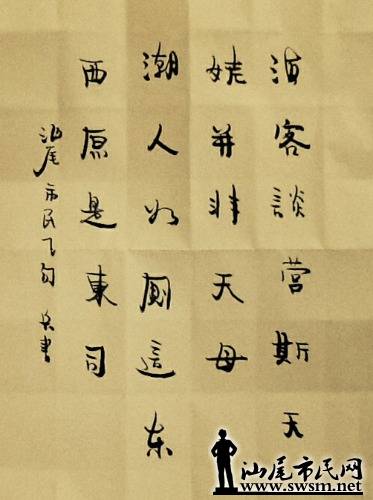 海客談营斯天
姥并非天母
潮人如厠這东
西原是東司
汕尾市民
汕尾市民网
www.swsm.net